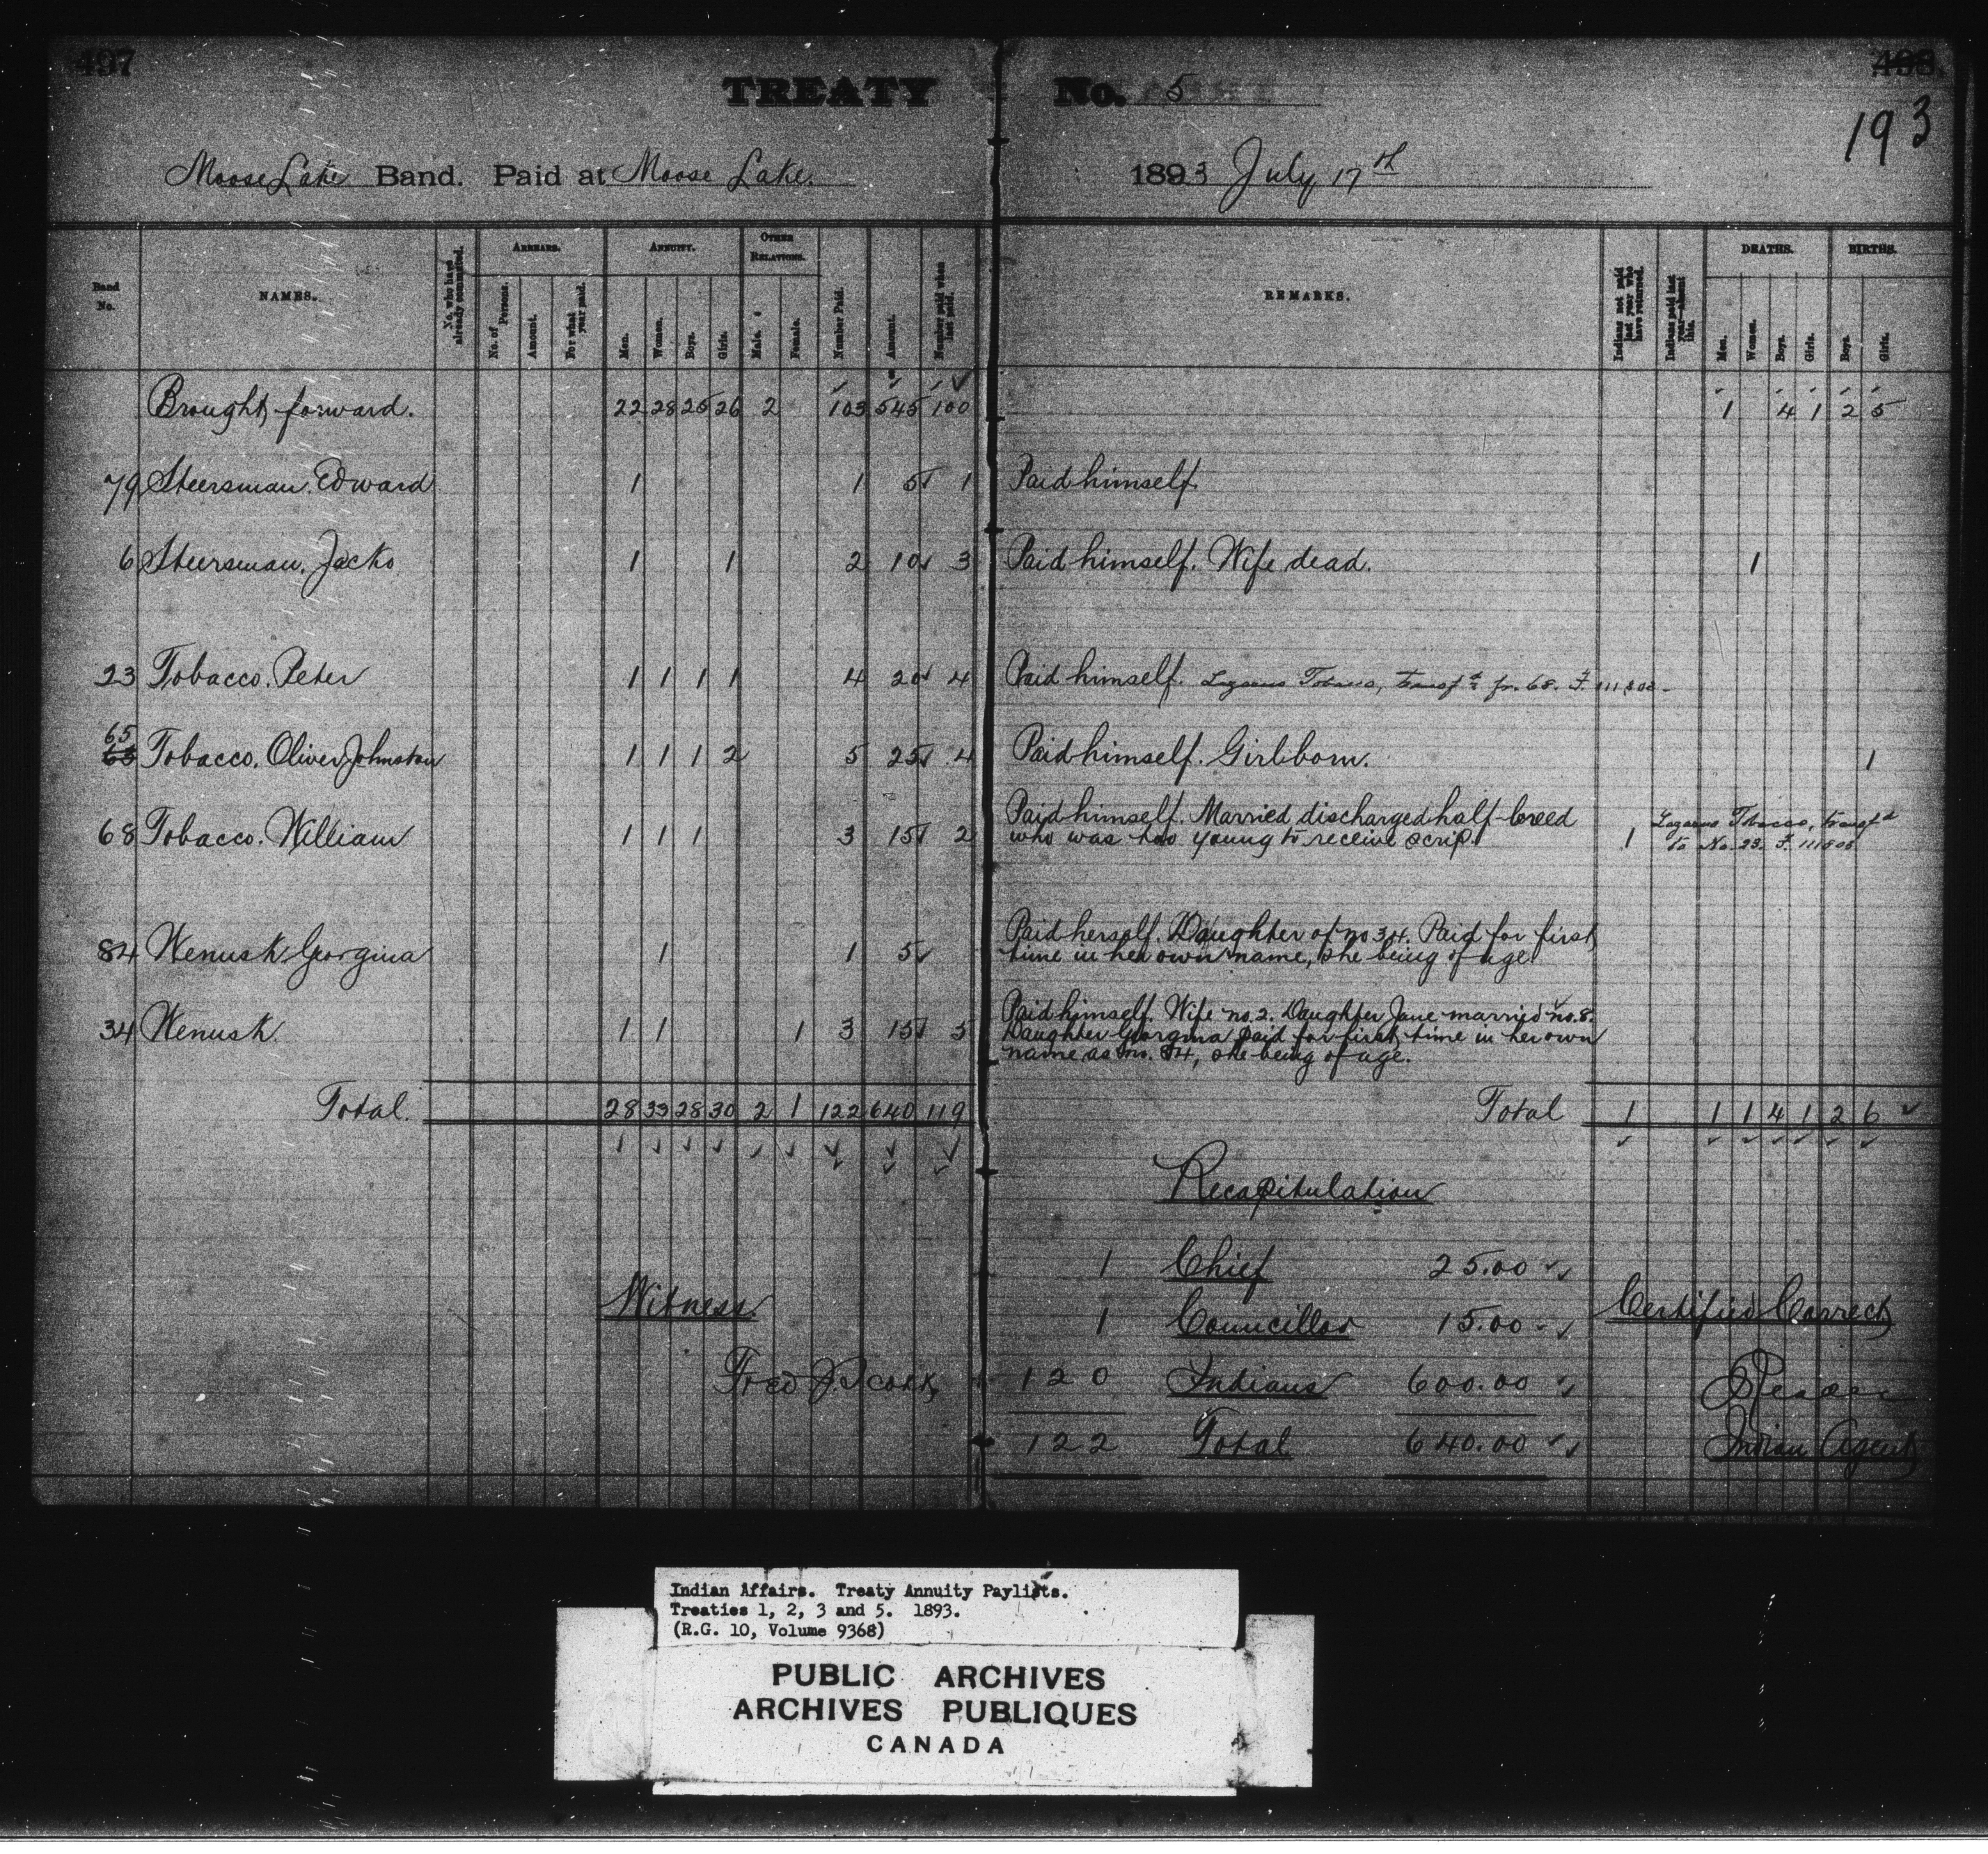 497
498
193
TREATY No. 5
Moose Lake Band. Paid at Moose Lake. 1893 July 17th
Band No.
NAMES.
No. who have already commuted.
ARREARS.
No. of Persons.
Amount.
For what year paid.
ANNUITY.
Men.
Women.
Boys.
Girls.
OTHER RELATIONS.
Male.
Female.
Number Paid.
Amount.
Number paid when last paid.
REMARKS.
Indians not paid last year who have returned.
Indians paid last year—absent this.
DEATHS.
Men.
Women.
Boys.
Girls.
BIRTHS.
Boys.
Girls.
Brought forward. 22 28 25 26 2 103 545 100 1 4 1 2 5
79 Steersman. Edward 1 1 5 1 Paid himself.
6 Steersman. Jacko 1 1 2 10 3 Paid himself. Wife dead. 1
23 Tobacco. Peter 1 1 1 1 4 20 4 Paid himself. Lazarus Tobacco, transfd fr. 68. F. 111,808
65
68 Tobacco. Oliver Johnston 1 1 1 2 5 25 4 Paid himself. Girl born. 1
68 Tobacco. William 1 1 1 3 15 2 Paid himself. Married discharged half-breed
who was too young to receive scrip. 1
Lazarus Tobacco, transfd
to No. 23. F. 111808
84 Wenusk Georgina 1 1 5 Paid herself. Daughter of no 34. Paid for first
time in her own name, she being of age.
34 Wenusk. 1 1 1 3 15 5 Paid himself. Wife no. 2. Daughter Jane married no. 8.
Daughter Georgina paid for first time in her own
name as no. 84, she being of age.
Total. 28 33 28 30 2 1 122 640 119 Total 1 1 1 4 1 2 6
Recapitulation
1 Chief 25.00
1 Councillor 15.00
120 Indians 600.00
122 Total 640.00
Witness
Fred J.
Certified Correct
Reader
Indian Agent
Indian Affairs. Treaty Annuity Paylists.
Treaties 1, 2, 3 and 5. 1893.
(R.G. 10, Volume 9368)
PUBLIC ARCHIVES
ARCHIVES PUBLIQUES
CANADA